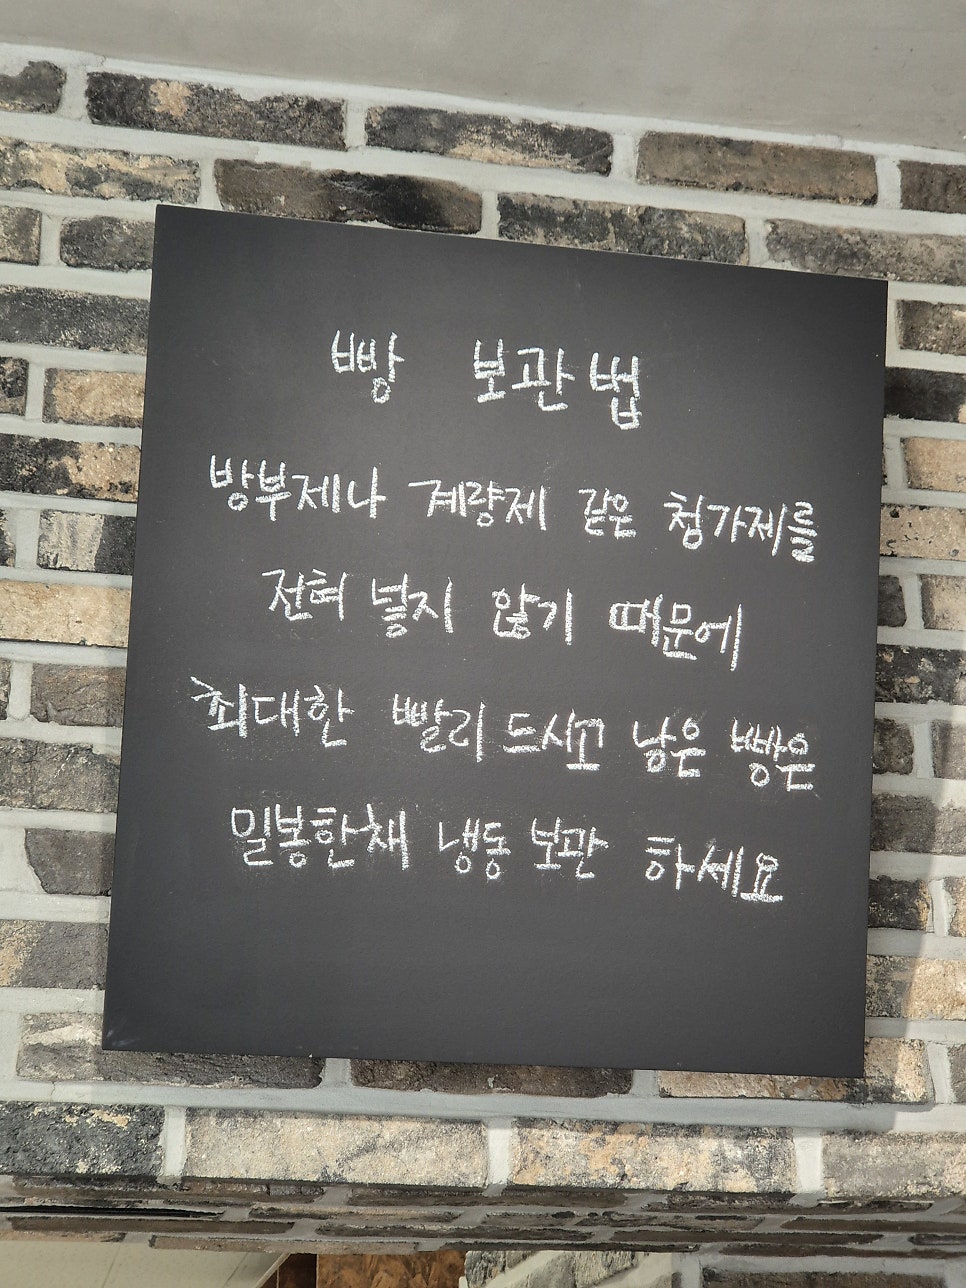 빵 보관법
방부제나 계량제 같은 첨가제를
전혀 넣지 않기 때문에
최대한 빨리 드시고 남은 빵은
밀봉한채 냉동 보관 하세요